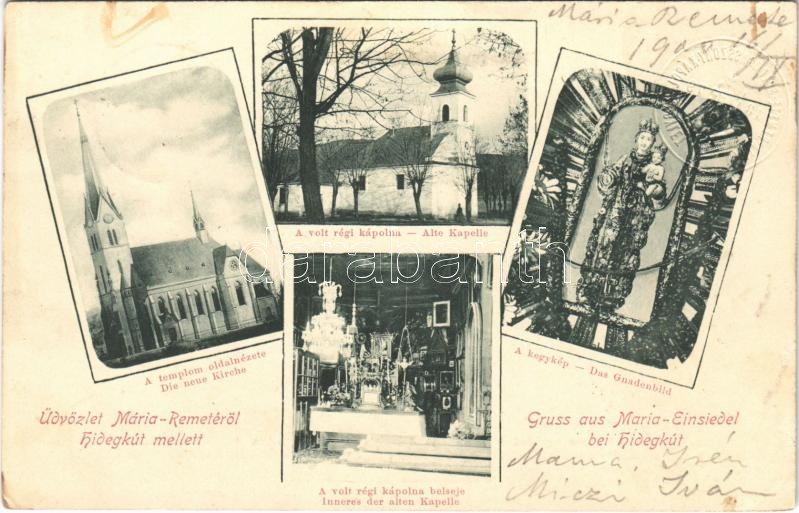 Mária Remete
A volt régi kápolna — Alte Kapelle
A templom oldalnézete
Die neue Kirche
A kegykép — Das Gnadenbild
darabanth
Üdvözlet Mária-Remetéről
Hidegkút mellett
Gruss aus Maria-Einsiedel
bei Hidegkút
A volt régi kápolna belseje
Inneres der alten Kapelle
Mama, Irén
Miczi Iván